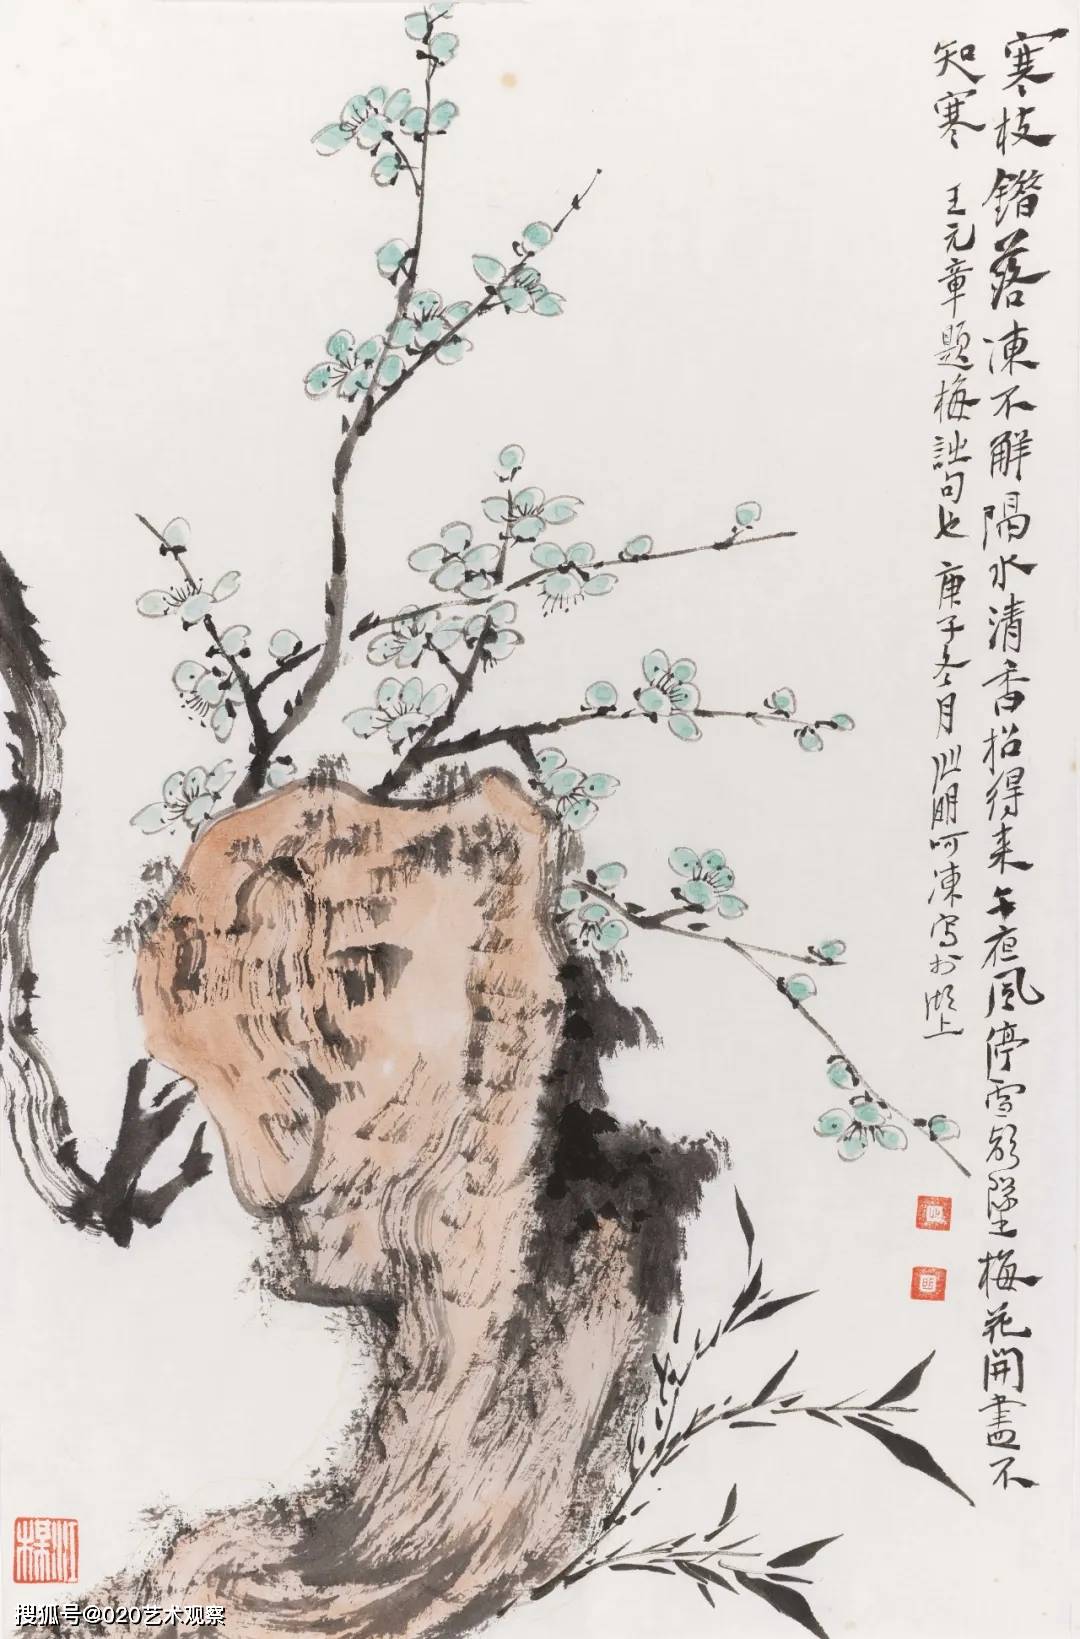 寒枝錯落凍不解隔水清香招得来午夜風停雪欲墜梅花開盡不
知寒 王元章題梅詩句也 庚子冬月 明呵凍寫於湖上
搜狐号@020艺术观察